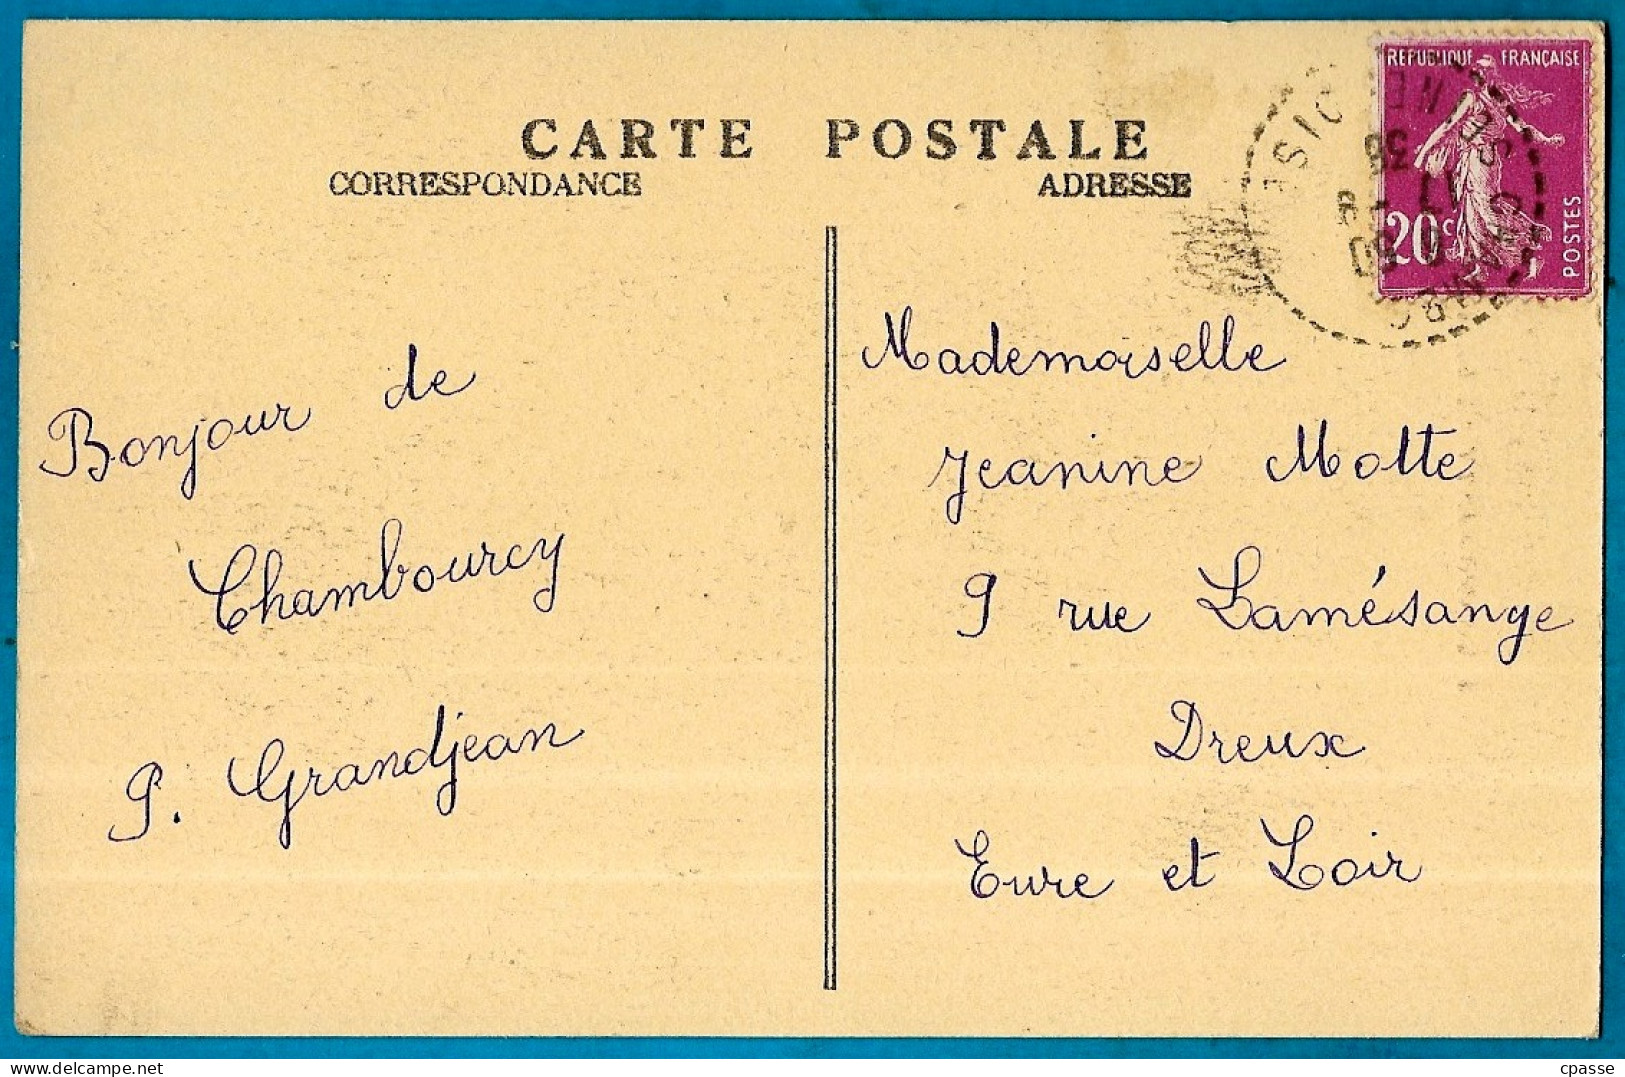 CARTE POSTALE
CORRESPONDANCE
ADRESSE
REPUBLIQUE FRANÇAISE
20c
POSTES
Bonjour de
Chambourcy
P. Grandjean
Mademoiselle
Jeanine Motte
9 rue Lamésange
Dreux
Eure et Loir
cpasse